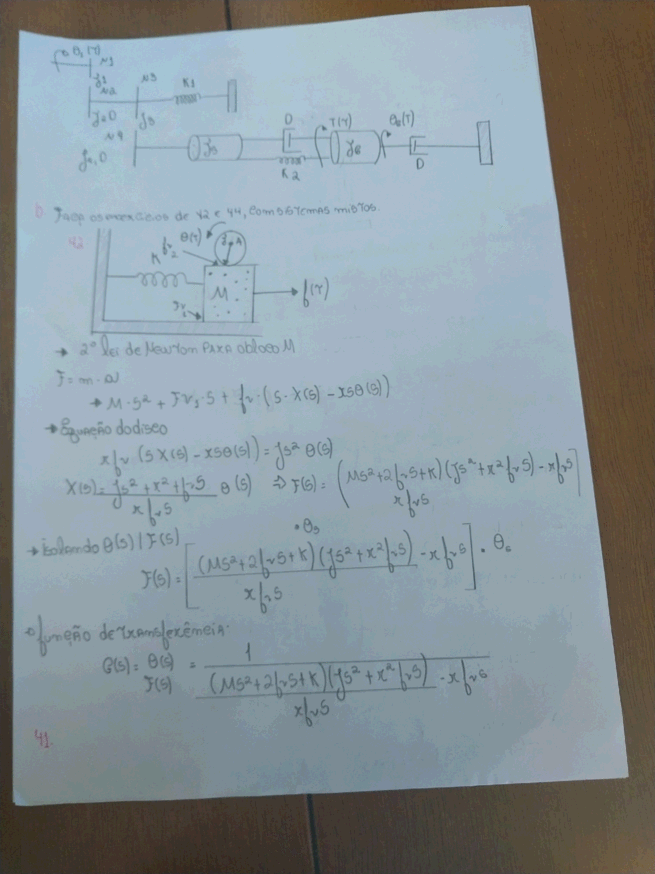 θ1(T) N1
J1
N2 N3 K1
J2,D J3
N4 D T(T) θ6(T)
J4,D J5 J6
K2 D
b. Faça os exercícios de 42 e 44, com sistemas mistos.
42
fv2 θ(T) J,r
K M f(T)
fv1
→ 2º lei de Newton PARA o bloco M
F = m · a
→ M·s² + Fv1·s + fv·(s·X(s) - rsθ(s))
→ Equação do disco
rfv(sX(s) - rsθ(s)) = Js² θ(s)
X(s) = Js² + r² + fvs / rfvs θ(s) ⇒ F(s) = ((Ms²+2fvs+K)(Js²+r²fvs) - rfvs / rfvs
· θs
→ isolando θ(s) / F(s)
F(s) = [(Ms²+2fvs+K)(Js²+r²fvs) / rfvs - rfvs] · θs
→ função de transferência:
G(s) = θ(s)/F(s) = 1 / (Ms²+2fvs+K)(Js²+r²fvs) / rfvs - rfvs
41.